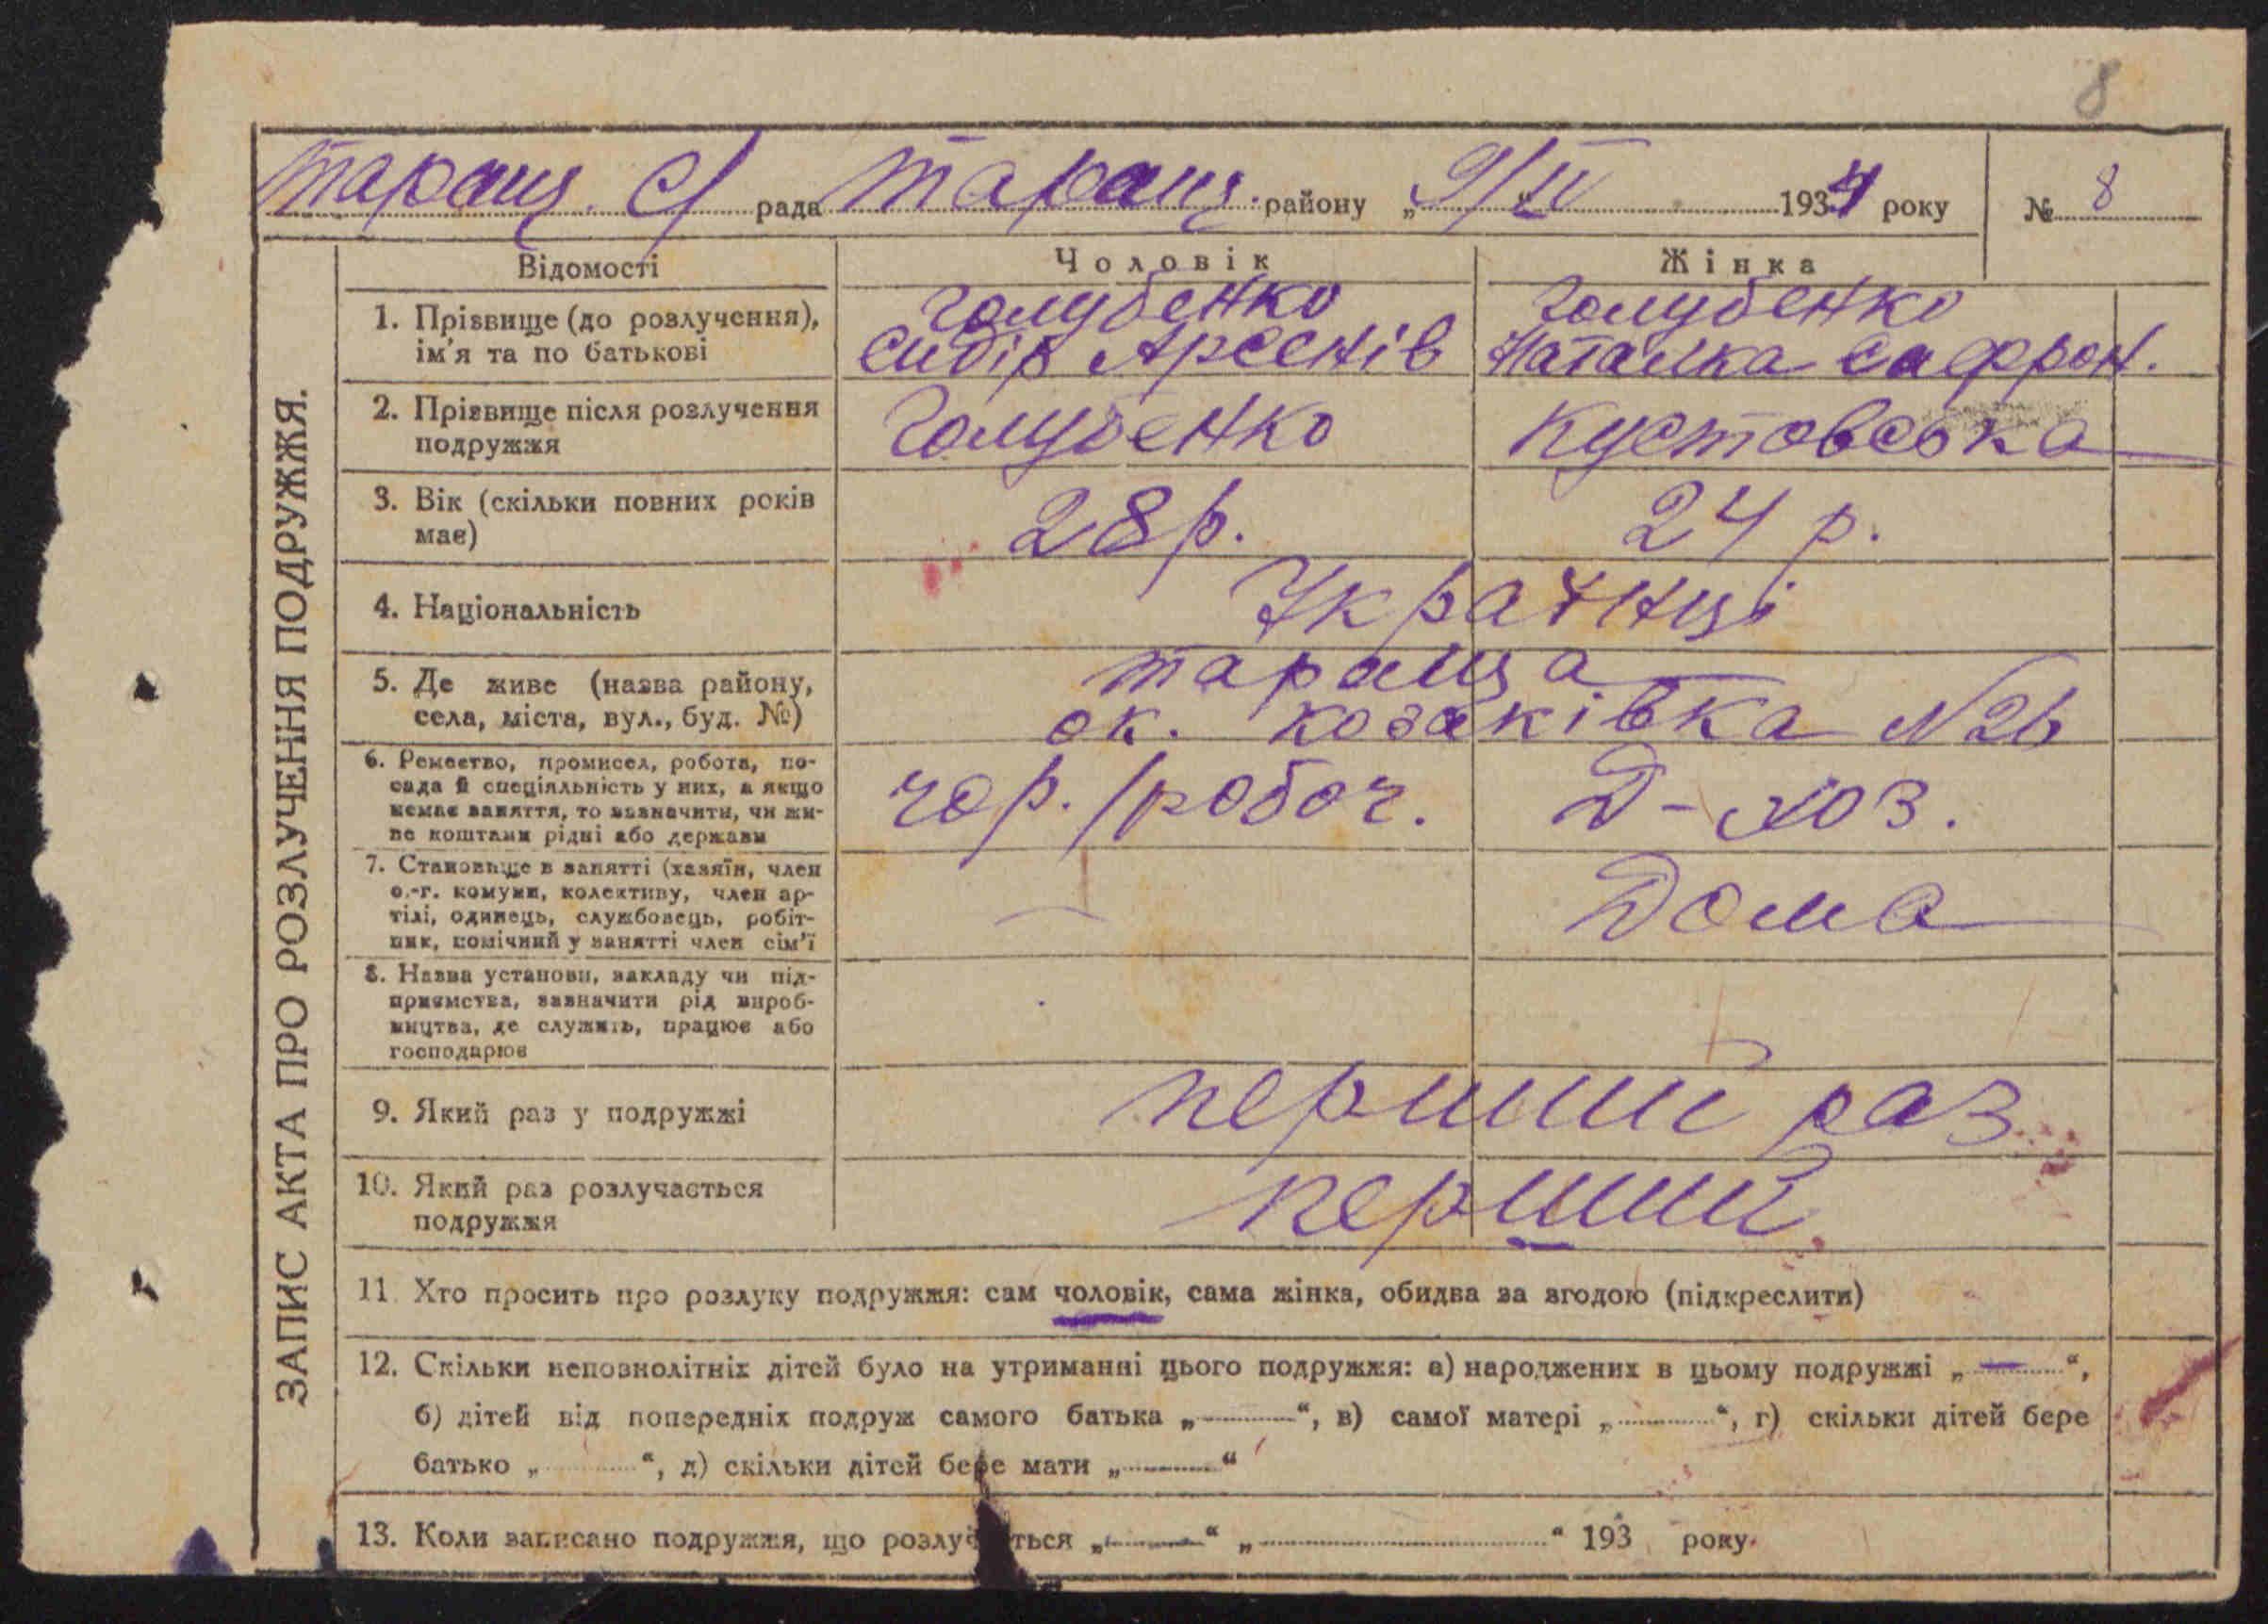 8
Таращ. С/ рада Таращ. району „ 9/IV “ 1934 року № 8
ЗАПИС АКТА ПРО РОЗЛУЧЕННЯ ПОДРУЖЖЯ.
Відомості Чоловік Жінка
1. Прізвище (до розлучення), Голубенко Голубенко
ім'я та по батькові Сидір Арсенів Наталка Сафрон.
2. Прізвище після розлучення Голубенко Кустовська
подружжя
3. Вік (скільки повних років 28 р. 24 р.
має)
4. Національність Українці
5. Де живе (назва району, Тараща
села, міста, вул., буд. №) ок. Козаківка №26
6. Ремество, промисел, робота, по-
сада й спеціяльність у них, а якщо чор./робоч. Д-хоз.
немає заняття, то зазначити, чи жи-
ве коштами рідні або держави
7. Становище в занятті (хазяїн, член
с.-г. комуни, колективу, член ар- — Дома
тілі, одинець, службовець, робіт-
ник, помічний у занятті член сім'ї
8. Назва установи, закладу чи під-
приємства, зазначити рід вироб-
ництва, де служить, працює або
господарює
9. Який раз у подружжі перший раз
10. Який раз розлучається перший
подружжя
11. Хто просить про розлуку подружжя: сам чоловік, сама жінка, обидва за згодою (підкреслити)
12. Скільки неповнолітніх дітей було на утриманні цього подружжя: а) народжених в цьому подружжі „ — “,
б) дітей від попередніх подруж самого батька „ “, в) самої матері „ “, г) скільки дітей бере
батько „ “, д) скільки дітей бере мати „ “
13. Коли записано подружжя, що розлучається „ “ „ “ 193 року